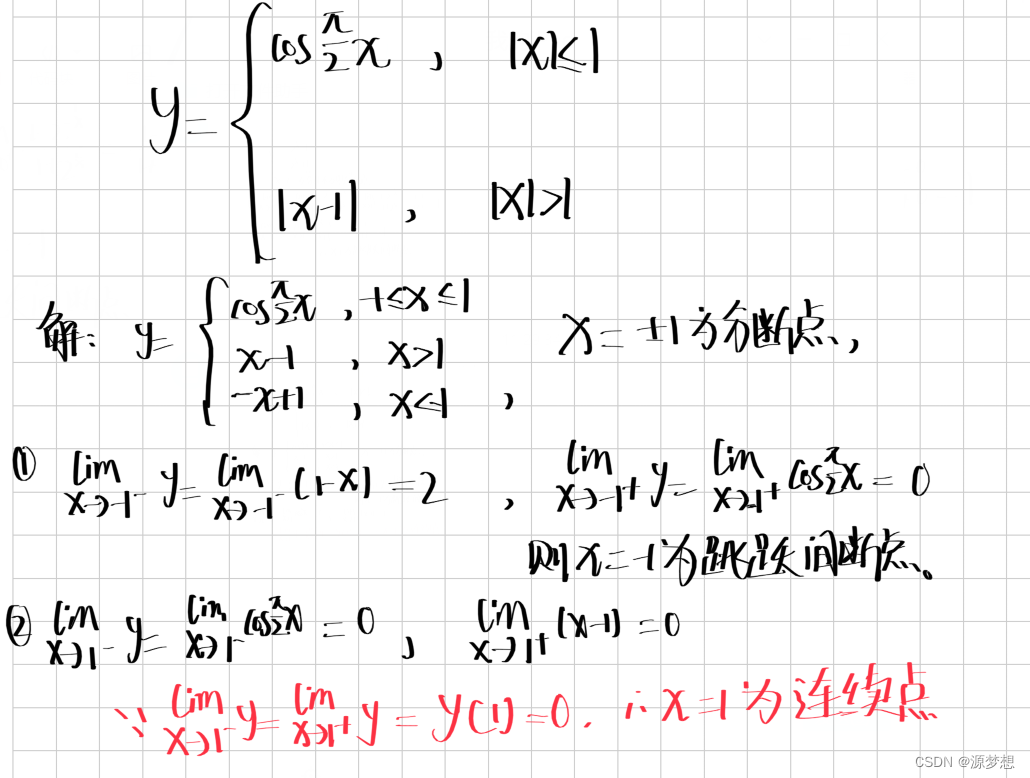 y= { cos π/2 x , |x|≤1
|x-1| , |x|>1
解: y= { cos π/2 x , -1≤x≤1
x-1 , x>1
-x+1 , x<-1 ,
x=±1为分断点,
① lim x→-1⁻ y= lim x→-1⁻ (1-x) =2 , lim x→-1⁺ y= lim x→-1⁺ cos π/2 x = 0
则x=-1为跳跃间断点。
② lim x→1⁻ y= lim x→1⁻ cos π/2 x =0 , lim x→1⁺ (x-1) =0
∵ lim x→1⁻ y= lim x→1⁺ y = y(1)=0. ∴x=1为连续点
CSDN @源梦想